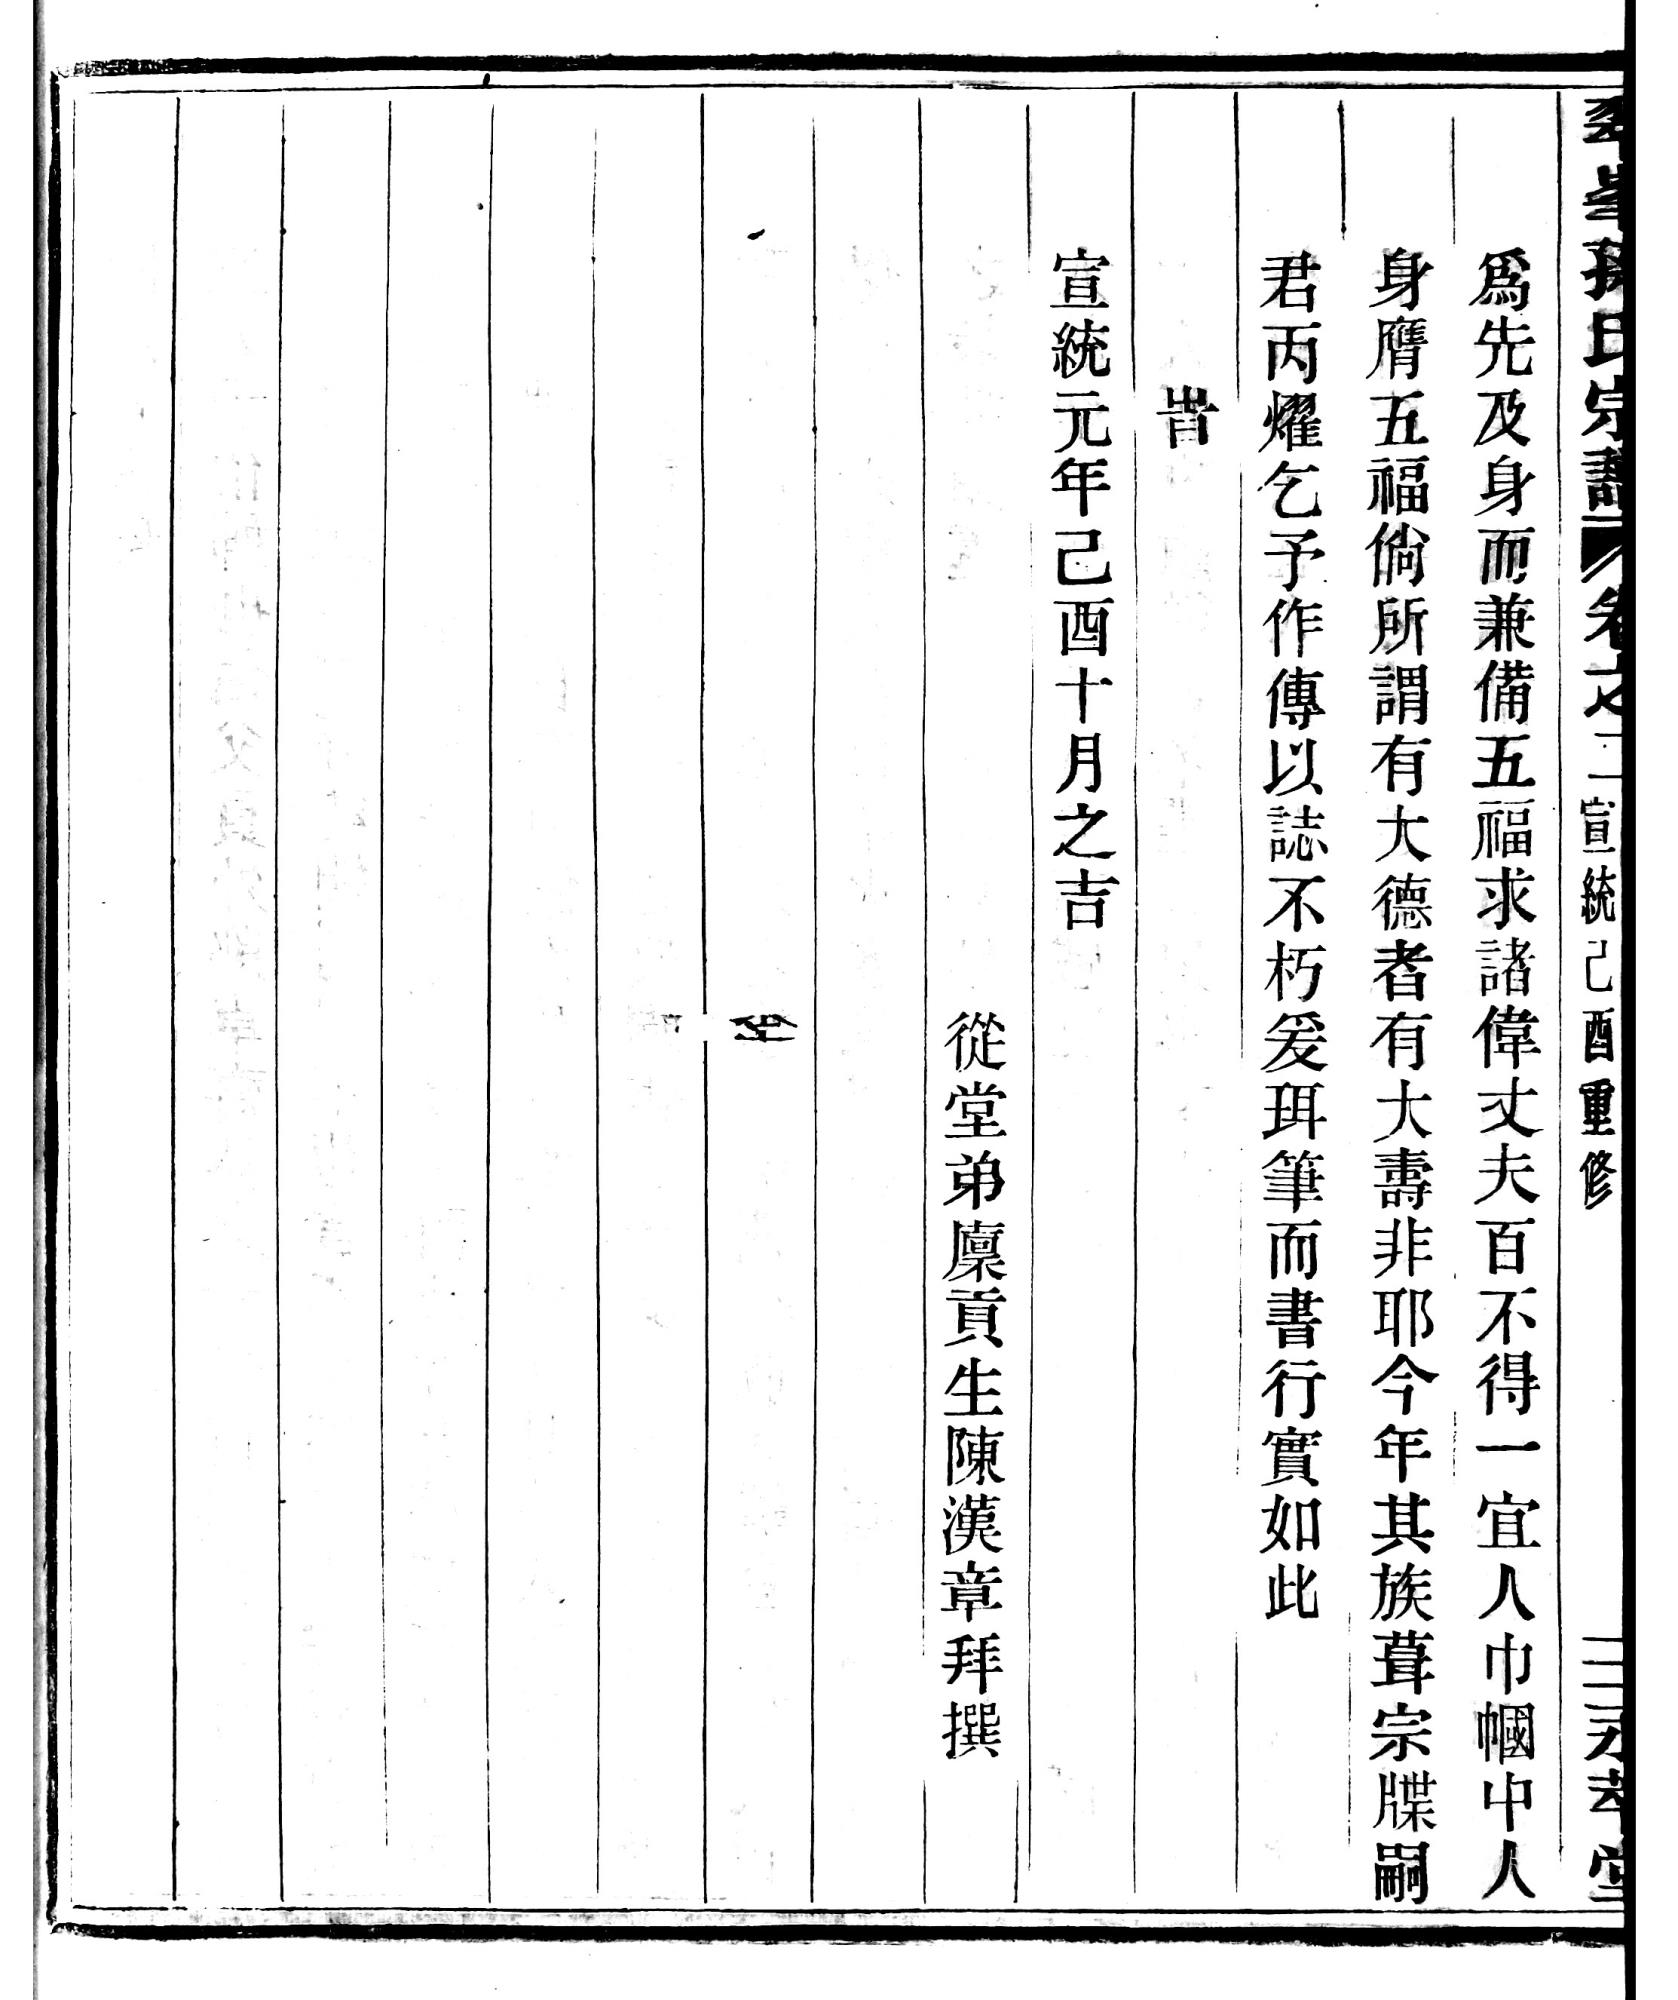 峯孫氏宗譜卷之二宣統己酉重修三永孝堂
爲先及身而兼備五福求諸偉丈夫百不得一宜人巾幗中人
身膺五福倘所謂有大德者有大壽非耶今年其族葺宗牒嗣
君丙燿乞予作傳以誌不朽爰珥筆而書行實如此
旹
宣統元年己酉十月之吉
從堂弟廩貢生陳漢章拜撰